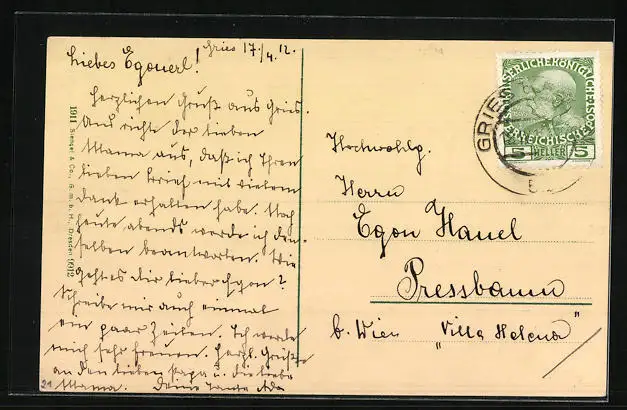 Gries 17./4.12.
Liebes Egonerl!
Herzlichen Gruß aus Gries.
Aus richte der lieben
Mama aus, daß ich Ihren
lieben Brief mit vielem
Dank erhalten habe. Noch
heute abends werde ich den
selben beantworten. Wie
geht es dir lieber Egon?
Schreibe mir auch einmal
ein paar Zeilen. Ich werde
mich sehr freuen. Herzl. Grüße
an den lieben Papa u. die liebe
Mama. Deine Tante
21
1911 Stengel & Co., G. m. b. H., Dresden 1912
KAISERLICHEKÖNIGLICHE
ÖSTERREICHISCHE
5 HELLER 5
GRIES
Hochwohlg.
Herrn
Egon Hanel
Pressbaum
b. Wien „Villa Helena"